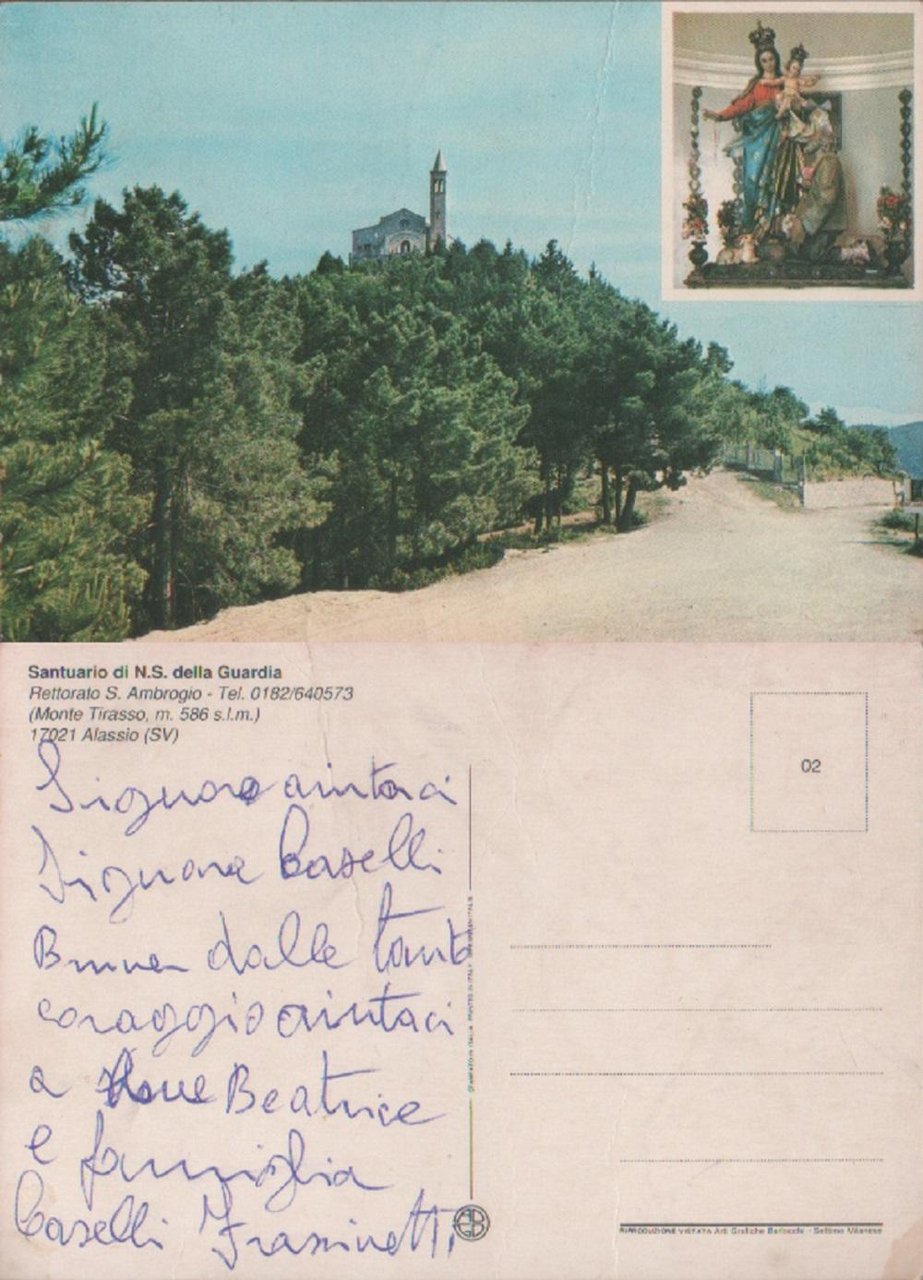 Santuario di N.S. della Guardia
Rettorato S. Ambrogio - Tel. 0182/640573
(Monte Tirasso, m. 586 s.l.m.)
17021 Alassio (SV)
02
Signore aiutaci
Signore Caselli
dalle tanto
coraggio aiutaci
a Beatrice
e famiglia
Caselli Frassinetti
RIPRODUZIONE VIETATA Arti Grafiche Barlocchi - Settimo Milanese